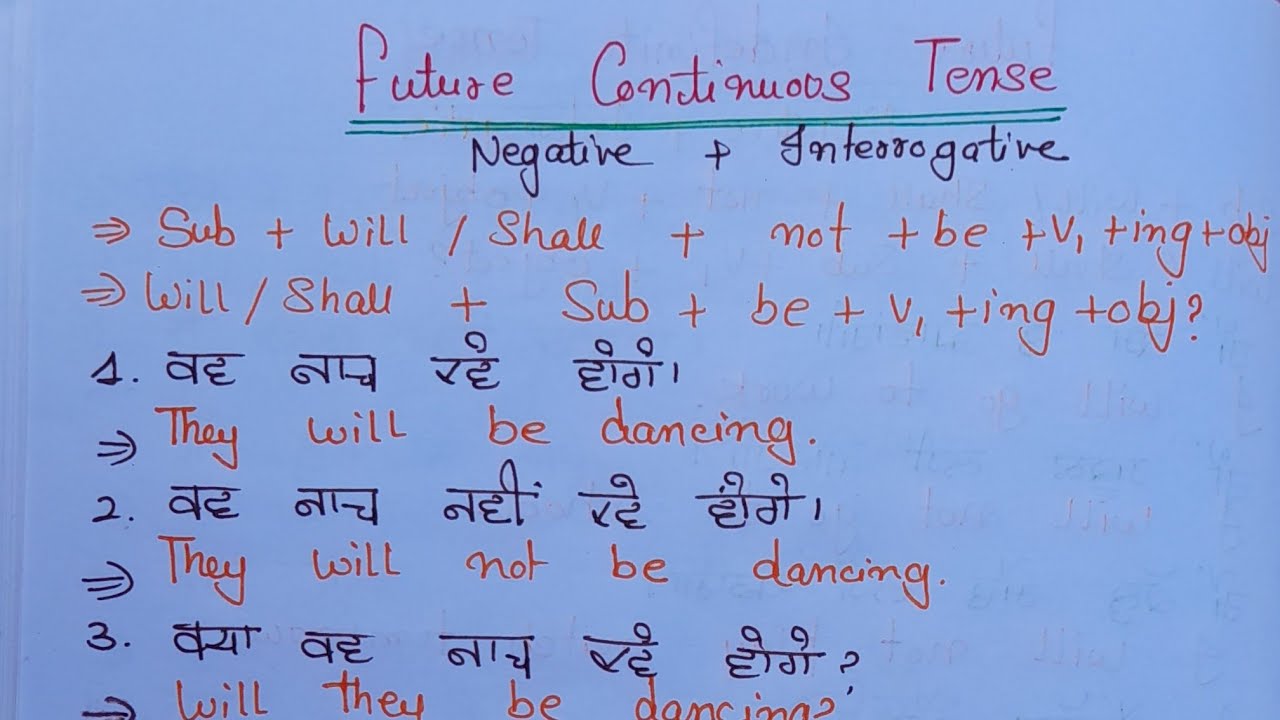 Future Continuous Tense
Negative + Interrogative
⇒ Sub + Will / Shall + not + be + V₁ + ing + obj
⇒ Will / Shall + Sub + be + V₁ + ing + obj?
1. वह नाच रहे होंगे।
⇒ They will be dancing.
2. वह नाच नहीं रहे होंगे।
⇒ They will not be dancing.
3. क्या वह नाच रहे होगे?
⇒ Will they be dancing?